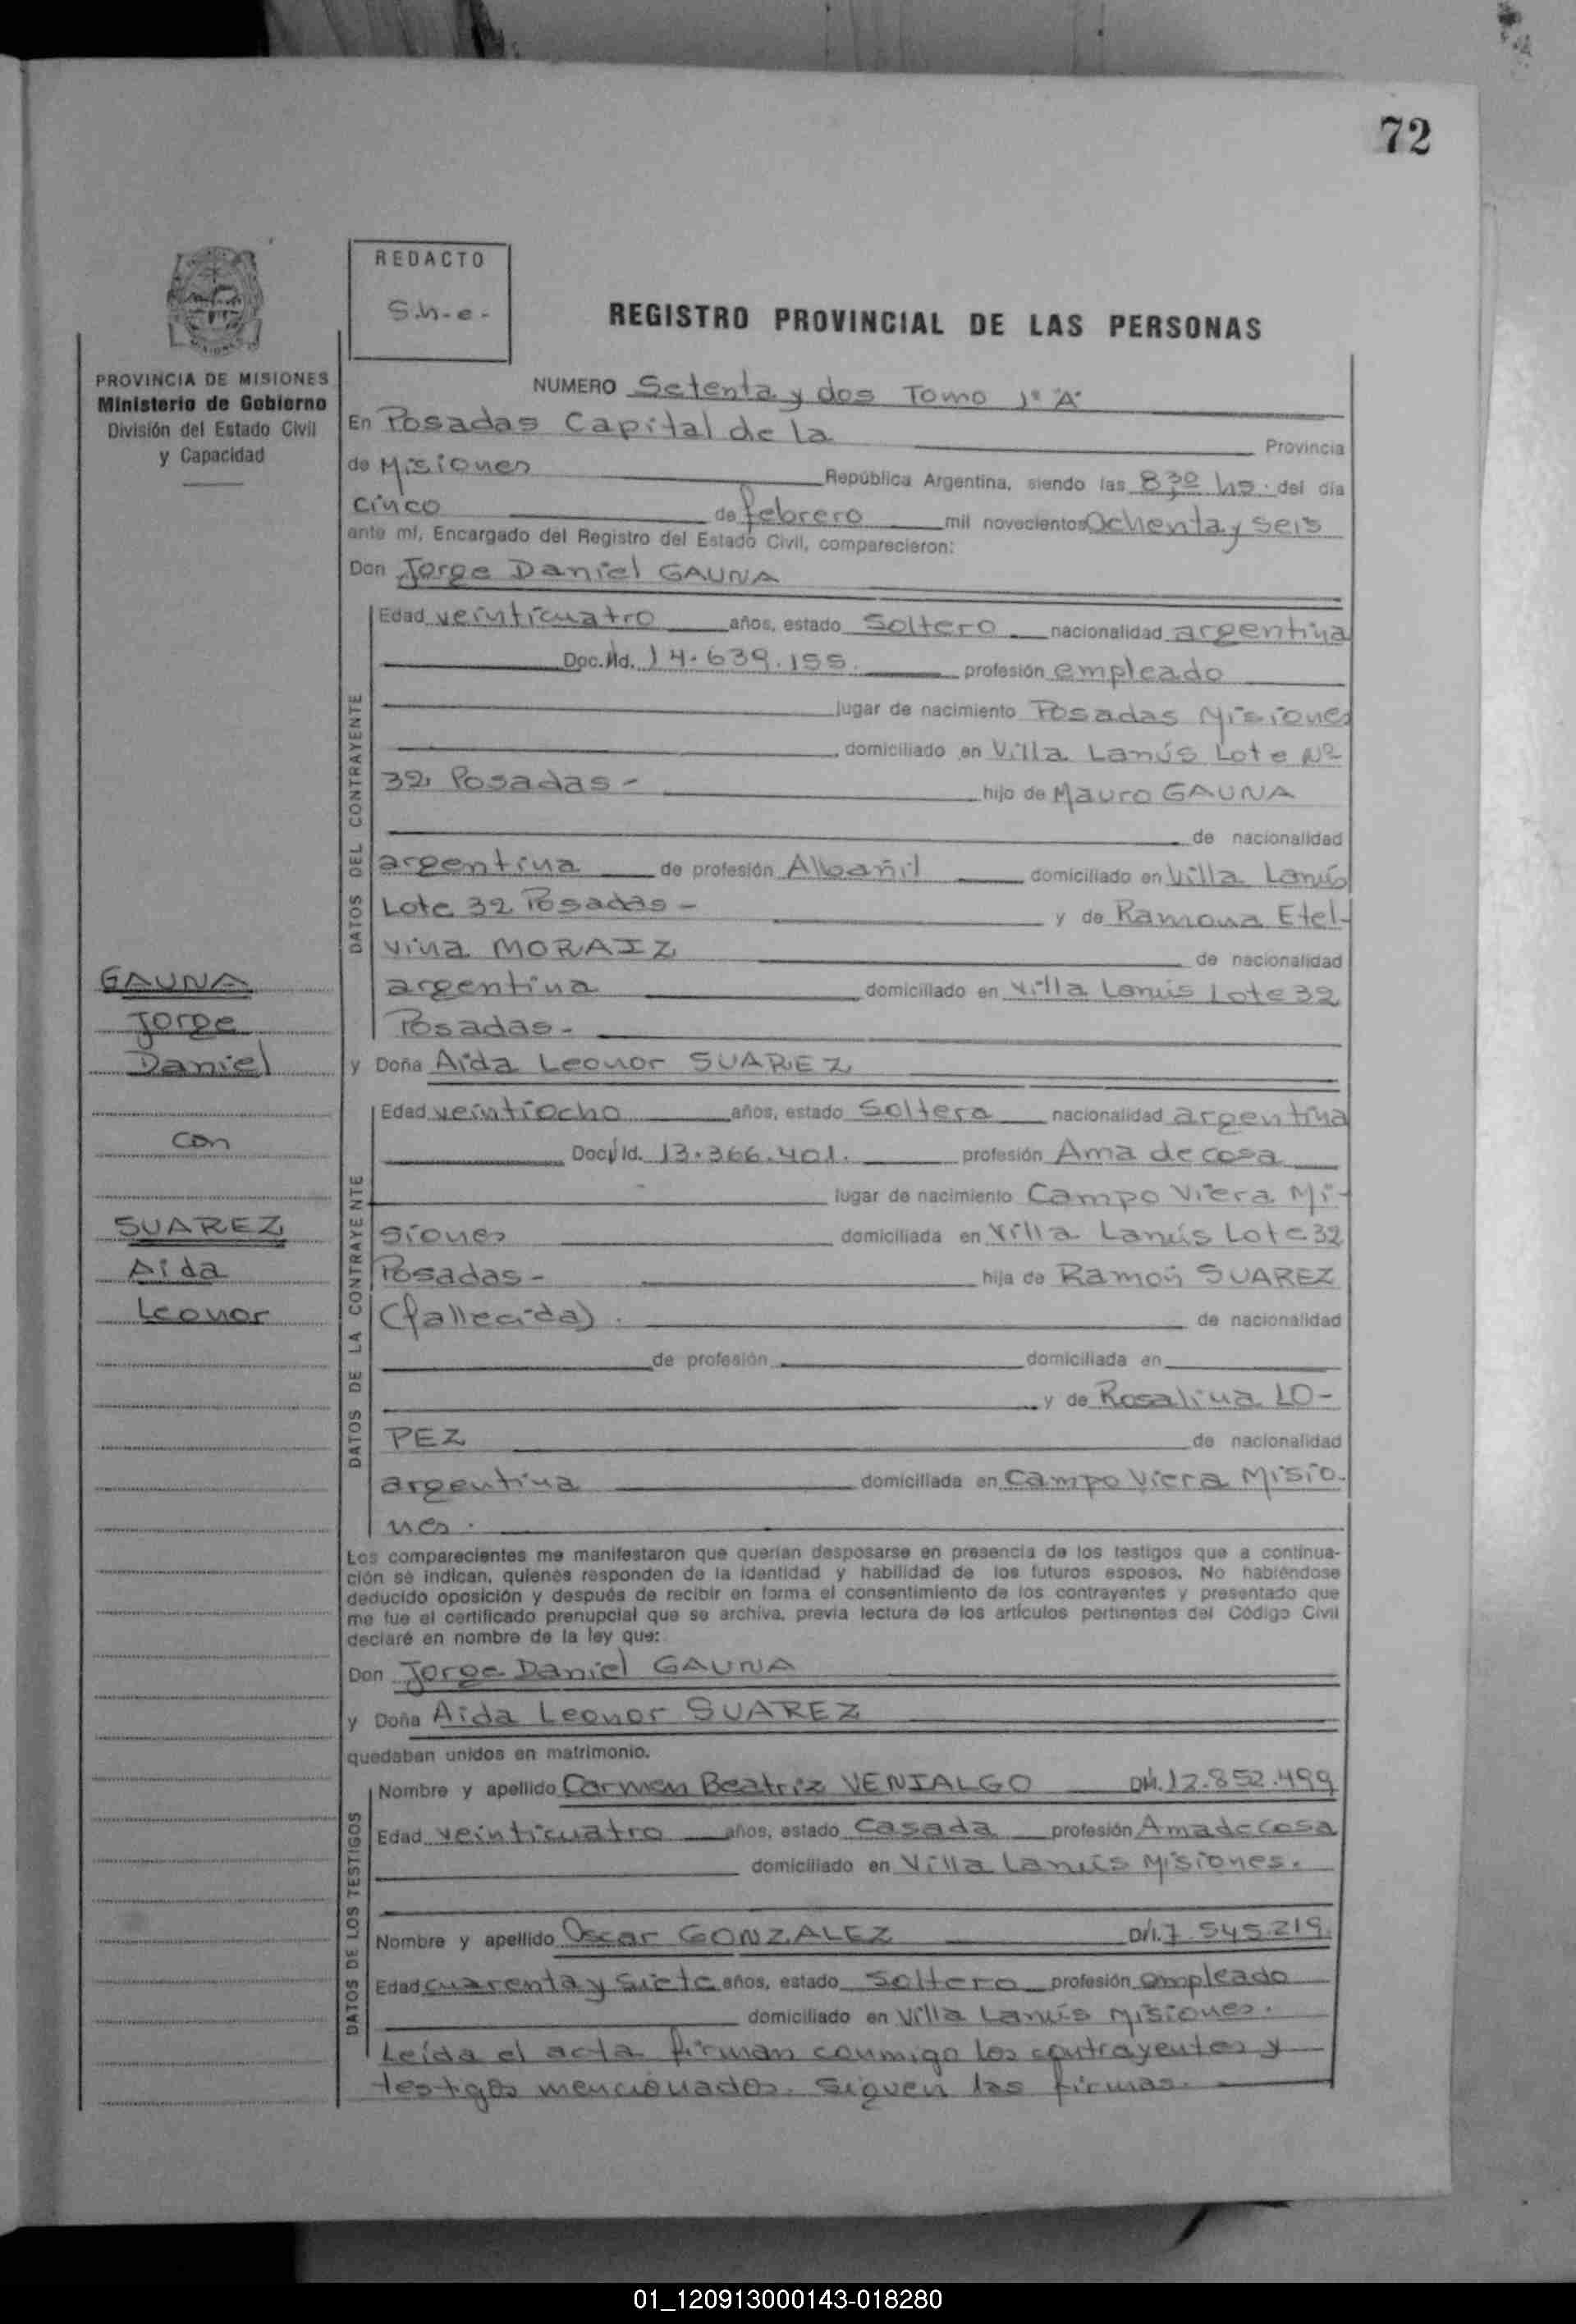 72
REDACTO
S.h-e-
REGISTRO PROVINCIAL DE LAS PERSONAS
PROVINCIA DE MISIONES
Ministerio de Gobierno
División del Estado Civil
y Capacidad
NUMERO Setenta y dos Tomo 1º "A"
En Posadas Capital de la Provincia
de Misiones República Argentina, siendo las 8,30 hs. del día
cinco de febrero mil novecientos ochenta y seis
ante mí, Encargado del Registro del Estado Civil, comparecieron:
Don Jorge Daniel GAUNA
DATOS DEL CONTRAYENTE
Edad veinticuatro años, estado Soltero nacionalidad argentina
Doc. Id. 14.639.155. profesión empleado
lugar de nacimiento Posadas Misiones
domiciliado en Villa Lanús Lote Nº
32, Posadas - hijo de Mauro GAUNA
de nacionalidad
argentina de profesión Albañil domiciliado en Villa Lanús
Lote 32 Posadas - y de Ramona Etel-
vina MORAIZ de nacionalidad
argentina domiciliado en Villa Lanús Lote 32
Posadas -
y Doña Aida Leonor SUAREZ
DATOS DE LA CONTRAYENTE
Edad veintiocho años, estado Soltera nacionalidad argentina
Doc. Id. 13.366.401. profesión Ama de casa
lugar de nacimiento Campo Viera Mi-
siones domiciliada en Villa Lanús Lote 32
Posadas - hija de Ramón SUAREZ
(fallecida). de nacionalidad
de profesión domiciliada en
y de Rosalina LO-
PEZ de nacionalidad
argentina domiciliada en Campo Viera Misio-
nes.
Los comparecientes me manifestaron que querían desposarse en presencia de los testigos que a continua-
ción se indican, quienes responden de la identidad y habilidad de los futuros esposos. No habiéndose
deducido oposición y después de recibir en forma el consentimiento de los contrayentes y presentado que
me fue el certificado prenupcial que se archiva, previa lectura de los artículos pertinentes del Código Civil
declaré en nombre de la ley que:
Don Jorge Daniel GAUNA
y Doña Aida Leonor SUAREZ
quedaban unidos en matrimonio.
DATOS DE LOS TESTIGOS
Nombre y apellido Carmen Beatriz VENIALGO DNI. 12.852.499
Edad veinticuatro años, estado Casada profesión Ama de casa
domiciliado en Villa Lanús Misiones.
Nombre y apellido Oscar GONZALEZ D/I. 7.545.219.
Edad cuarenta y siete años, estado Soltero profesión empleado
domiciliado en Villa Lanús Misiones.
Leída el acta firman conmigo los contrayentes y
testigos mencionados. Siguen las firmas.
GAUNA
Jorge
Daniel
con
SUAREZ
Aida
Leonor
01_120913000143-018280